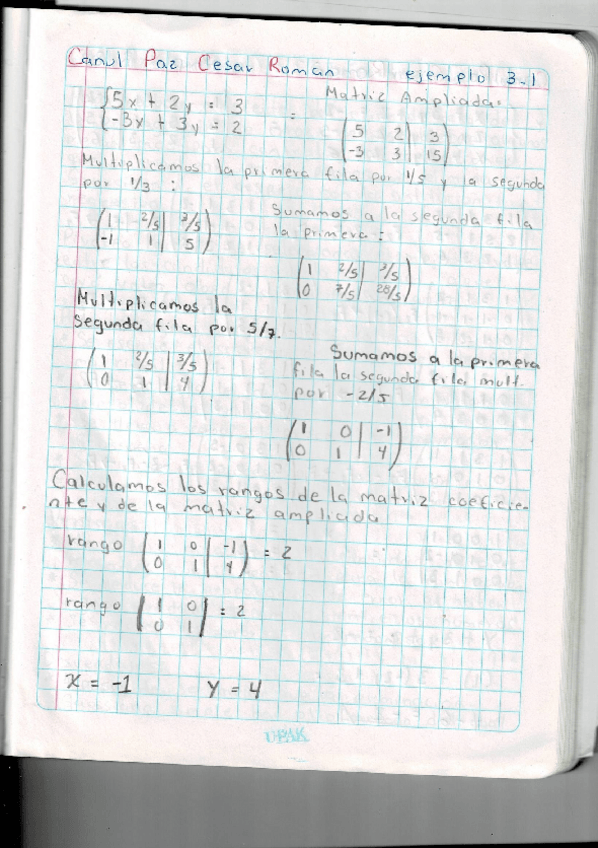 Canul Paz Cesar Roman ejemplo 3.1
5x + 2y = 3
-3x + 3y = 2
=
Matriz Ampliada.
5 2 | 3
-3 3 | 15
Multiplicamos la primera fila por 1/5 y la segunda
por 1/3 :
1 2/5 | 3/5
-1 1 | 5
Sumamos a la segunda fila
la primera :
1 2/5 | 3/5
0 7/5 | 28/5
Multiplicamos la
segunda fila por 5/7.
1 2/5 | 3/5
0 1 | 4
Sumamos a la primera
fila la segunda fila mult.
por -2/5
1 0 | -1
0 1 | 4
Calculamos los rangos de la matriz coeficie-
nte y de la matriz ampliada
rango ( 1 0 | -1 ) = 2
0 1 | 4
rango | 1 0 | = 2
0 1
x = -1 y = 4